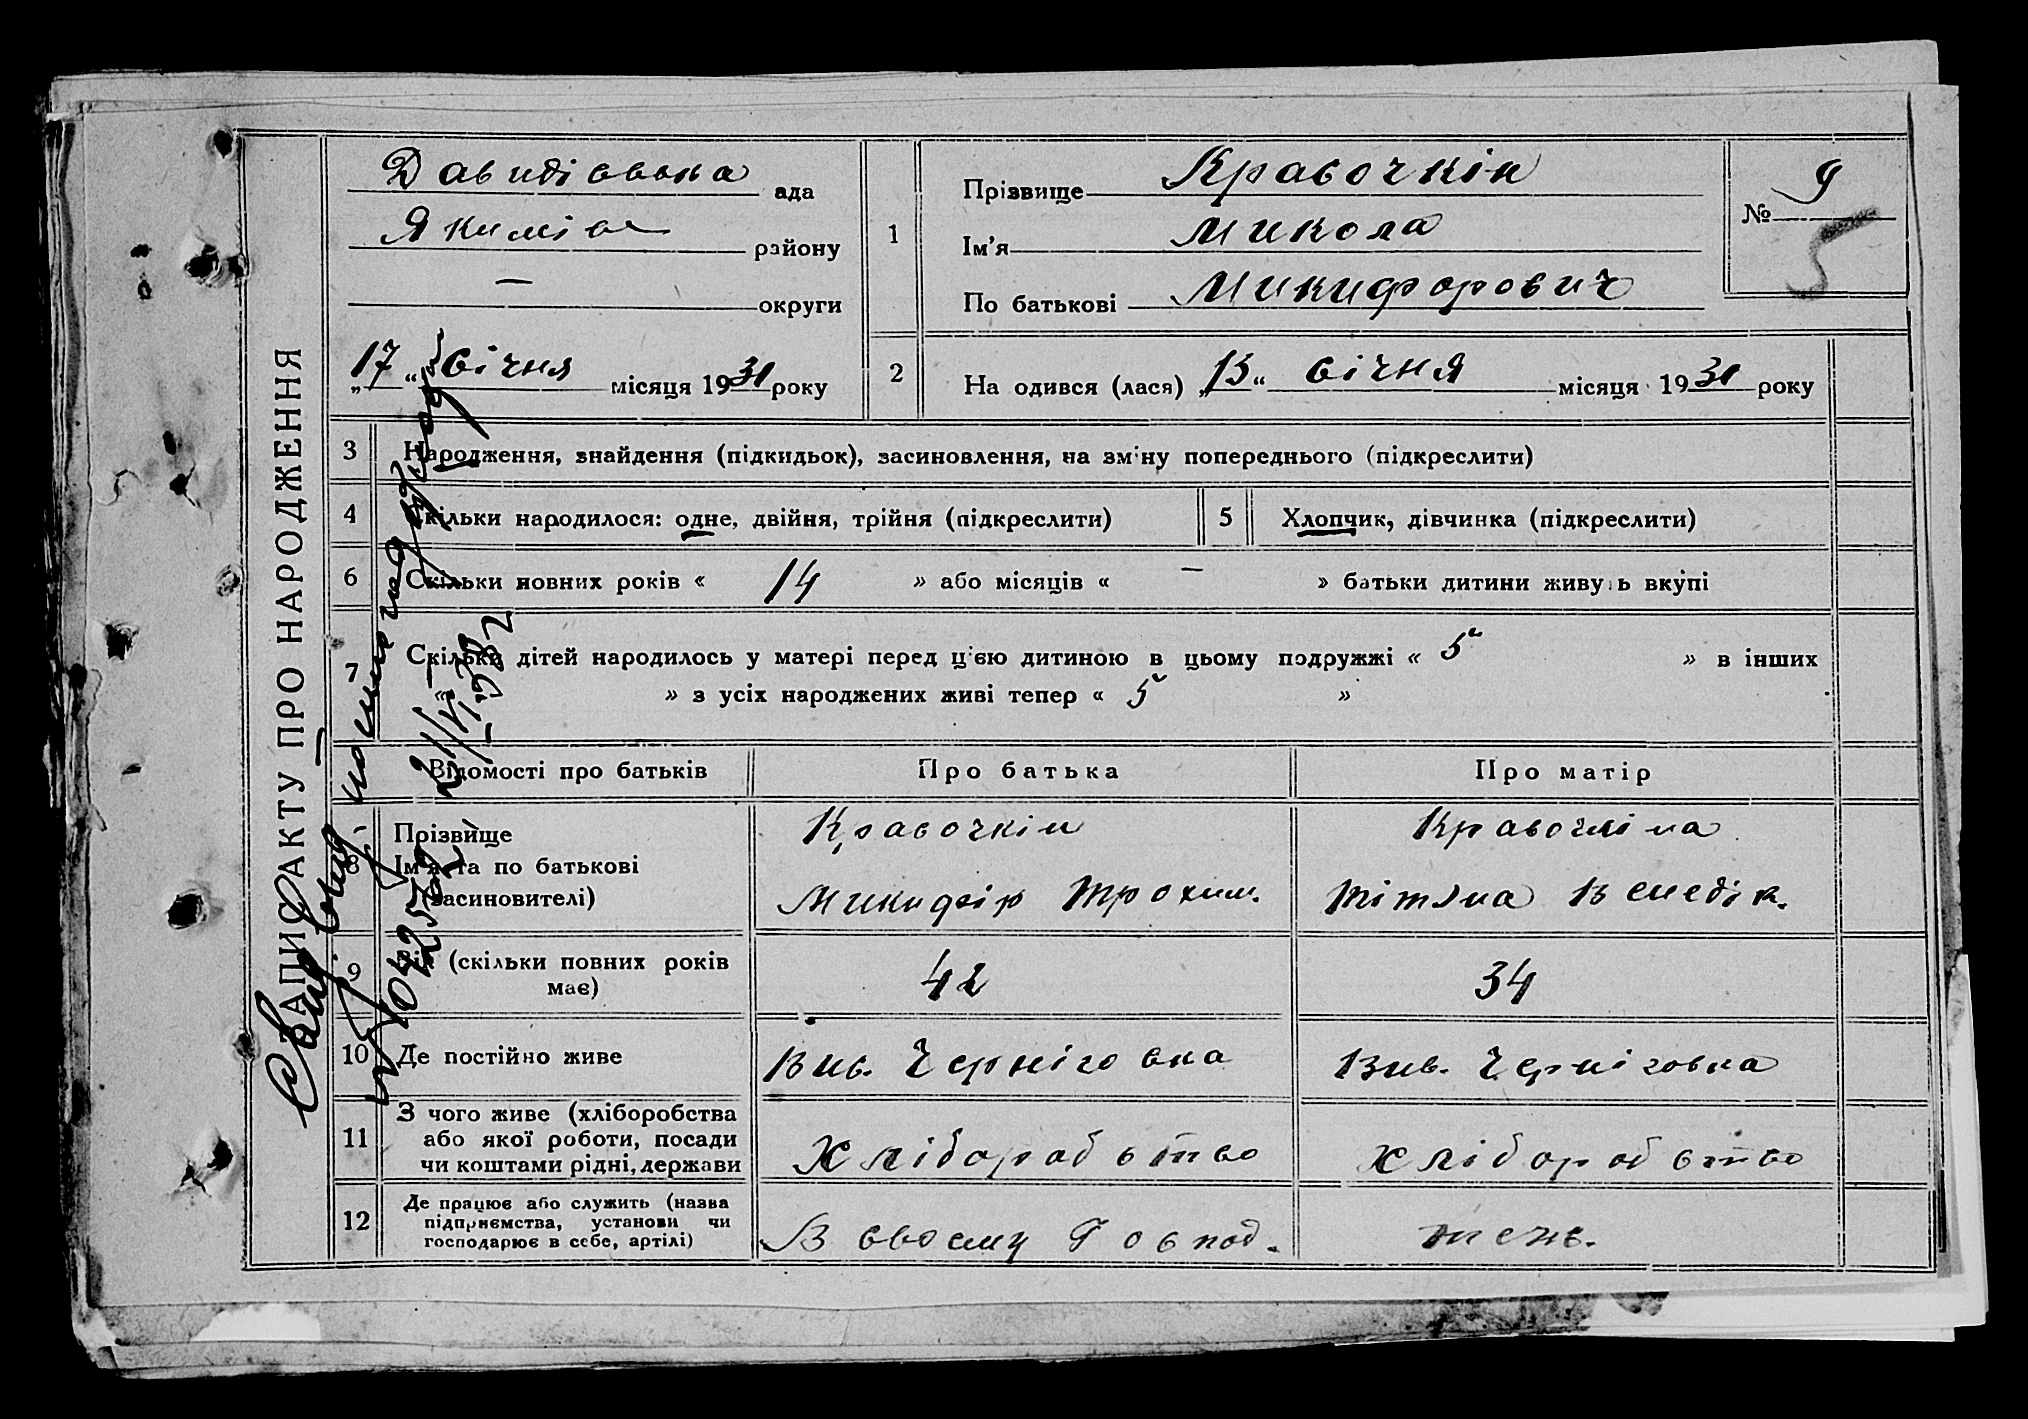 ЗАПИС АКТУ ПРО НАРОДЖЕННЯ
Давидівська ада
Якимів району
— округи
„17“ січня місяця 1931 року
1
Прізвище Кравочкін
Ім'я Микола
По батькові Микифорович
№ 9
5
2
На одився (лася) „13“ січня місяця 1931 року
3 Народження, знайдення (підкидьок), засиновлення, на зміну попереднього (підкреслити)
4 Скільки народилося: одне, двійня, трійня (підкреслити)
5 Хлопчик, дівчинка (підкреслити)
6 Скільки повних років « 14 » або місяців « — » батьки дитини живуть вкупі
7 Скільки дітей народилось у матері перед цією дитиною в цьому подружжі « 5 » в інших
» з усіх народжених живі тепер « 5 »
Відомості про батьків Про батька Про матір
8 Прізвище
Ім'я та по батькові
(засиновителі)
Кравочкін
Микифір Трохим.
Кравочкіна
Тітяна Венедік.
9 Вік (скільки повних років
має)
42
34
10 Де постійно живе
Вис. Черніговка
Вис. Черніговка
11 З чого живе (хліборобства
або якої роботи, посади
чи коштами рідні, держави
Хліборобство
Хліборобство
12 Де працює або служить (назва
підприємства, установи чи
господарює в себе, артілі)
В своєму Господ.
теж.